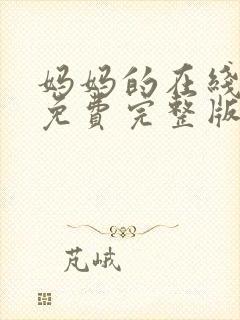 妈妈的在线
免費完整版
芃峨